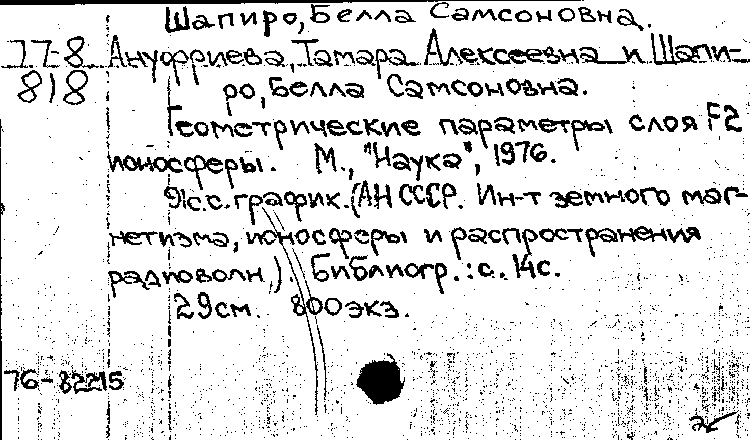 Шапиро, Белла Самсоновна.
77-8 Ануфриева, Тамара Алексеевна и Шапи-
818 ро, Белла Самсоновна.
Геометрические параметры слоя F2
ионосферы. М., "Наука", 1976.
91с. с. график. (АН СССР. Ин-т земного маг-
нетизма, ионосферы и распространения
радиоволн). Библиогр.: с. 14с.
29см. 800экз.
76-82215